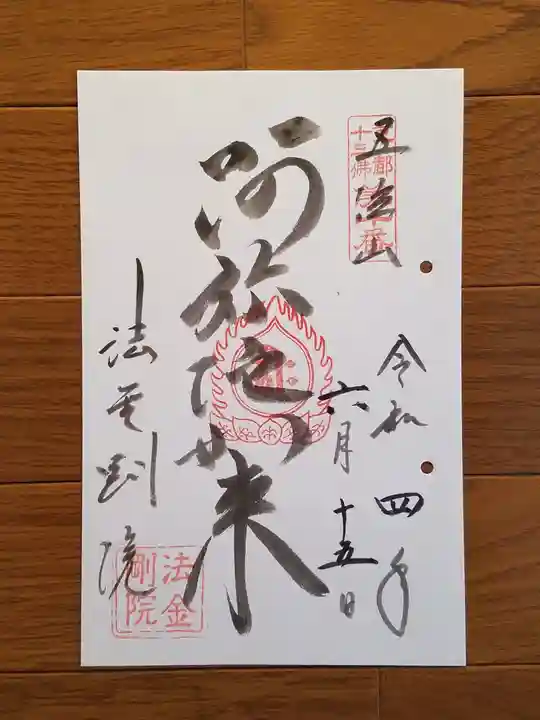 令和四年
六月十五日
五位山
京都
十三佛
第十番
阿弥陀如来
法金剛院
法金
剛院